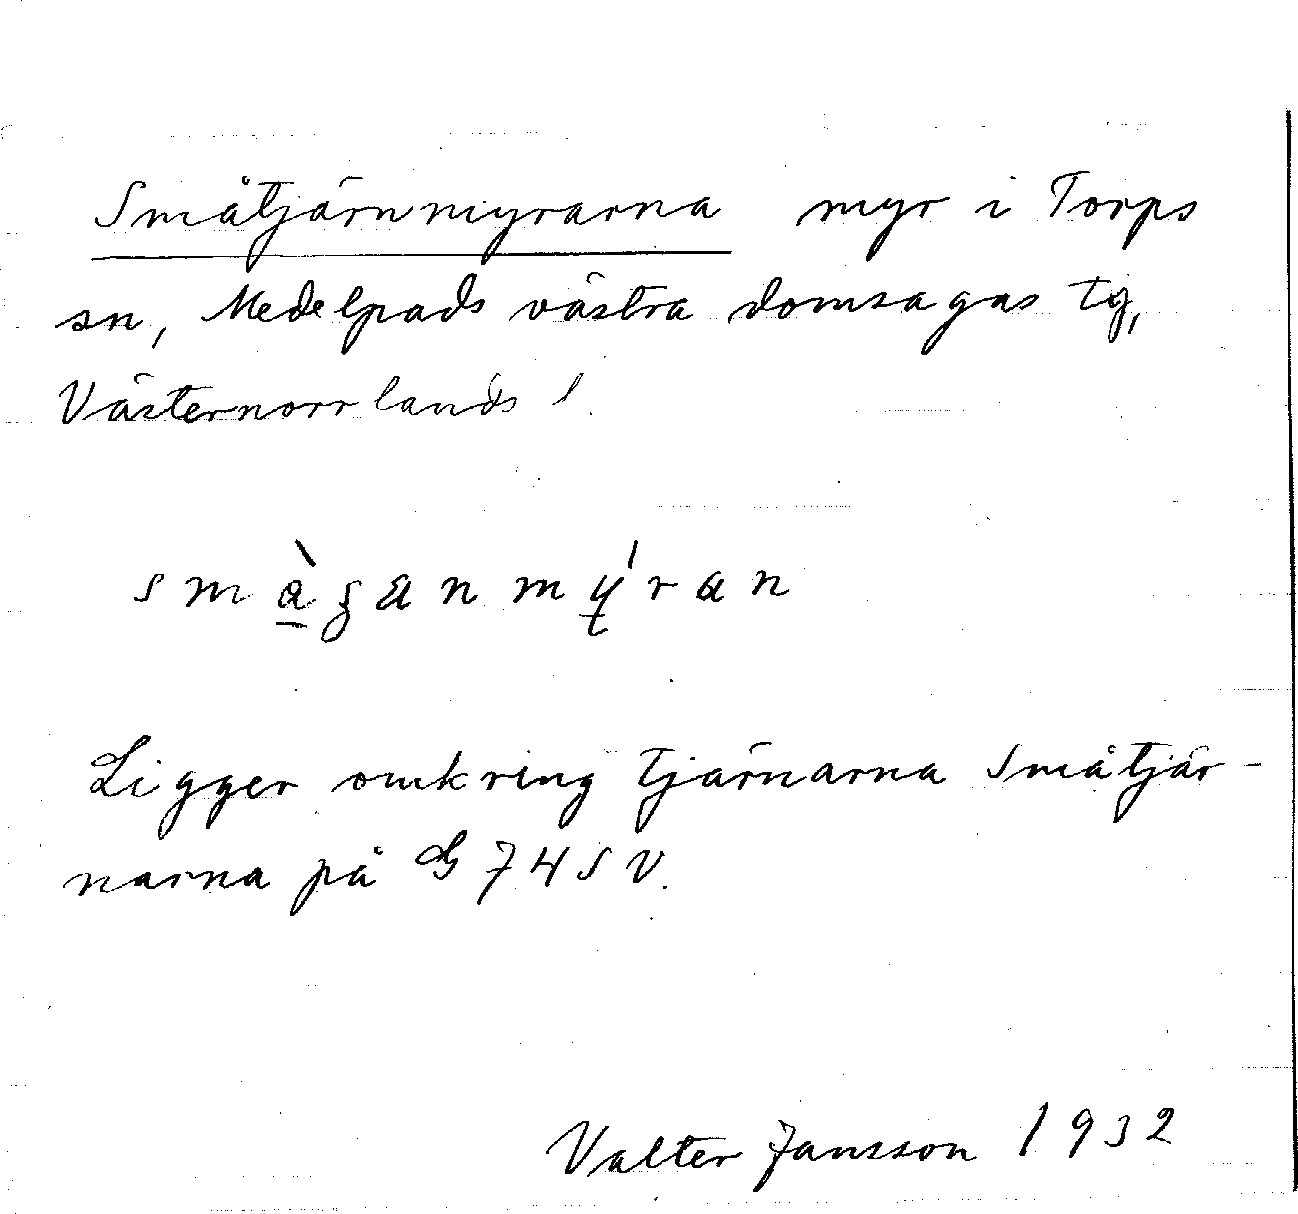 Småtjärnmyrarna myr i Torps
sn, Medelpads västra domsagas tg,
Västernorrlands l.
Ligger omkring tjärnarna Småtjär-
narna på G 74 SV.
Valter Jansson 1932